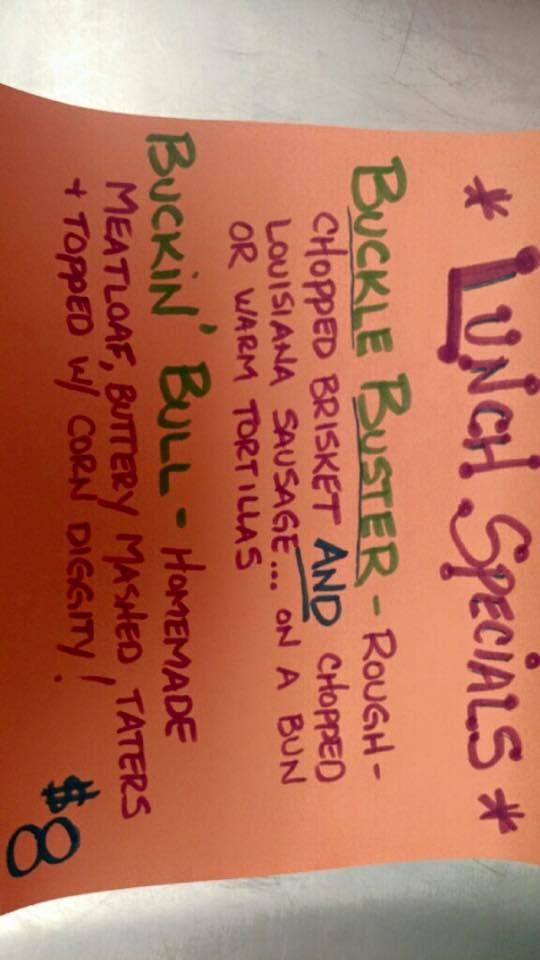 * LUNCH SPECIALS *
BUCKLE BUSTER - ROUGH-
CHOPPED BRISKET AND CHOPPED
LOUISIANA SAUSAGE... ON A BUN
OR WARM TORTILLAS
BUCKIN' BULL - HOMEMADE
MEATLOAF, BUTTERY MASHED TATERS
+ TOPPED W/ CORN DIGGITY!
$8